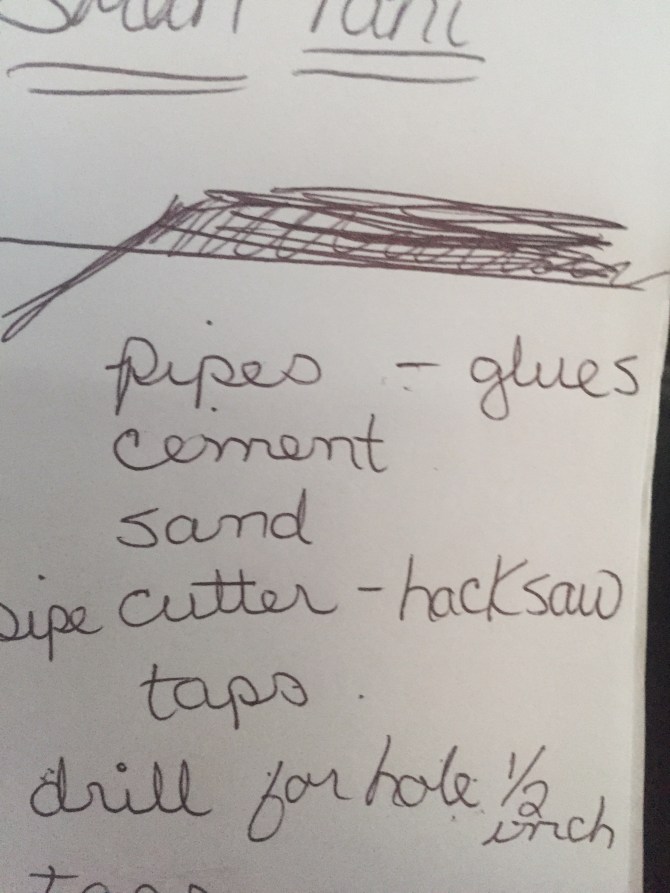 Smart
pipes - glues
cement
sand
pipe cutter - hacksaw
taps.
drill for hole 1/2
inch